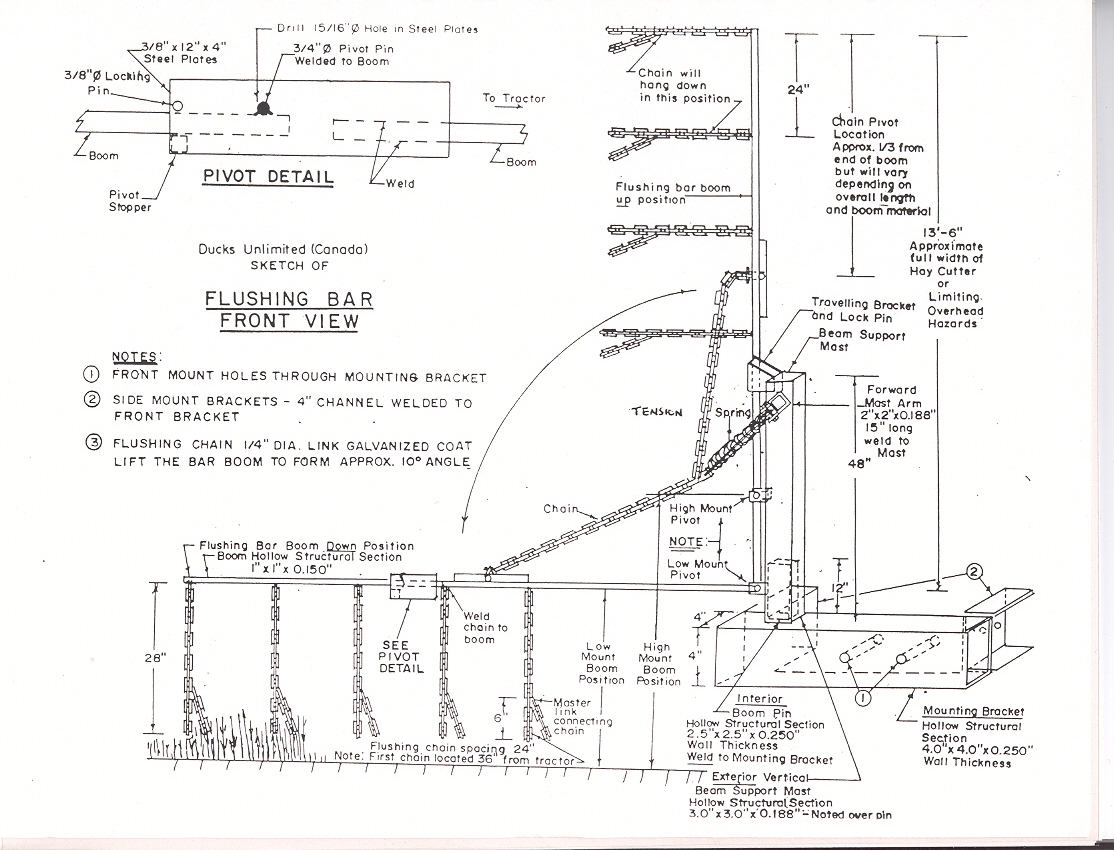 Drill 15/16"Ø Hole in Steel Plates
3/8" x 12" x 4"
Steel Plates
3/4"Ø Pivot Pin
Welded to Boom
3/8"Ø Locking
Pin
To Tractor
Boom
Boom
PIVOT DETAIL
Weld
Pivot
Stopper
Ducks Unlimited (Canada)
SKETCH OF
FLUSHING BAR
FRONT VIEW
NOTES:
1 FRONT MOUNT HOLES THROUGH MOUNTING BRACKET
2 SIDE MOUNT BRACKETS - 4" CHANNEL WELDED TO
FRONT BRACKET
3 FLUSHING CHAIN 1/4" DIA. LINK GALVANIZED COAT
LIFT THE BAR BOOM TO FORM APPROX. 10° ANGLE
Chain will
hang down
in this position
24"
Chain Pivot
Location
Approx. 1/3 from
end of boom
but will vary
depending on
overall length
and boom material
Flushing bar boom
up position
13'-6"
Approximate
full width of
Hay Cutter
or
Limiting
Overhead
Hazards
Travelling Bracket
and Lock Pin
Beam Support
Mast
Forward
Mast Arm
2"x2"x0.188"
15" long
weld to
Mast
48"
TENSION
Spring
Chain
High Mount
Pivot
NOTE:
Low Mount
Pivot
Flushing Bar Boom Down Position
Boom Hollow Structural Section
1" x 1" x 0.150"
12"
2
4"
4"
28"
SEE
PIVOT
DETAIL
Weld
chain to
boom
Low
Mount
Boom
Position
High
Mount
Boom
Position
6"
Master
link
connecting
chain
Flushing chain spacing 24"
Note: First chain located 36" from tractor
1
Interior
Boom Pin
Hollow Structural Section
2.5"x 2.5"x 0.250"
Wall Thickness
Weld to Mounting Bracket
Mounting Bracket
Hollow Structural
Section
4.0"x 4.0"x0.250"
Wall Thickness
Exterior Vertical
Beam Support Mast
Hollow Structural Section
3.0"x3.0"x 0.188" - Noted over pin